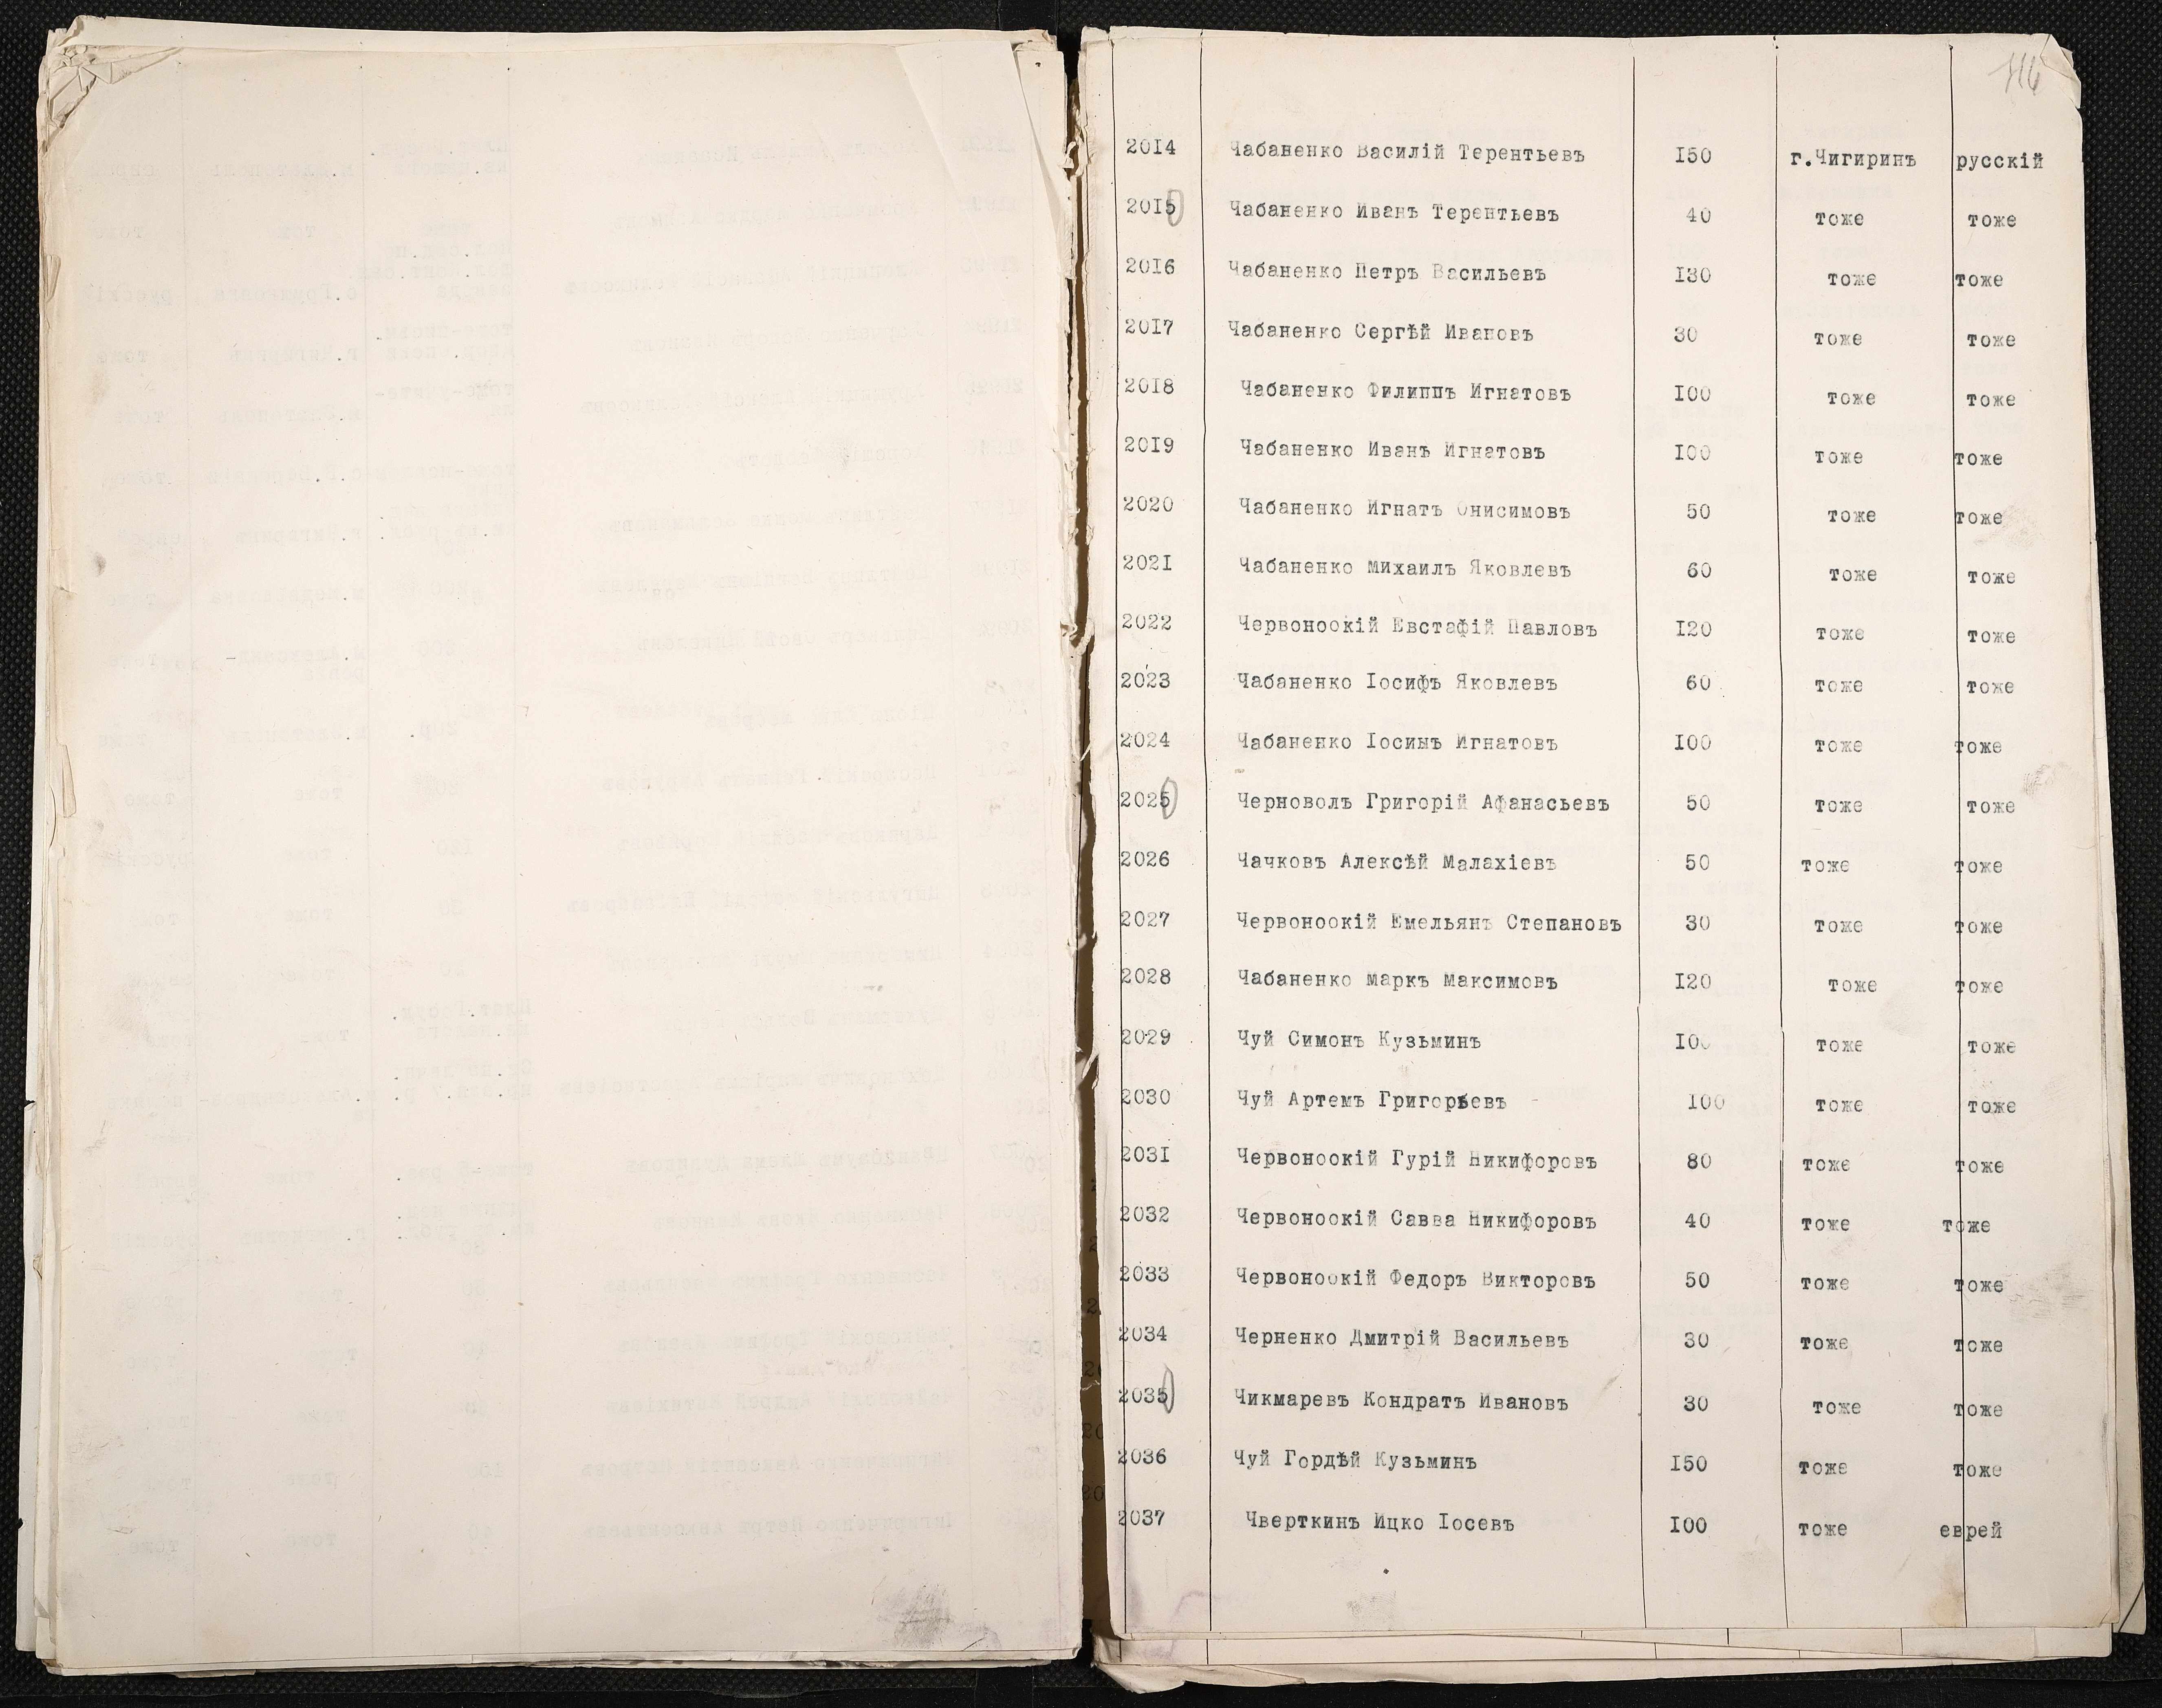 116
2014 Чабаненко Василій Терентьевъ 150 г.Чигиринъ русскій
2015 Чабаненко Иванъ Терентьевъ 40 тоже тоже
2016 Чабаненко Петръ Васильевъ 130 тоже тоже
2017 Чабаненко Сергѣй Ивановъ 30 тоже тоже
2018 Чабаненко Филиппъ Игнатовъ 100 тоже тоже
2019 Чабаненко Иванъ Игнатовъ 100 тоже тоже
2020 Чабаненко Игнатъ Онисимовъ 50 тоже тоже
2021 Чабаненко Михаилъ Яковлевъ 60 тоже тоже
2022 Червоноокій Евстафій Павловъ 120 тоже тоже
2023 Чабаненко Іосифъ Яковлевъ 60 тоже тоже
2024 Чабаненко Іосинъ Игнатовъ 100 тоже тоже
2025 Черноволъ Григорій Афанасьевъ 50 тоже тоже
2026 Чачковъ Алексѣй Малахіевъ 50 тоже тоже
2027 Червоноокій Емельянъ Степановъ 30 тоже тоже
2028 Чабаненко Маркъ Максимовъ 120 тоже тоже
2029 Чуй Симонъ Кузьминъ 100 тоже тоже
2030 Чуй Артемъ Григорьевъ 100 тоже тоже
2031 Червоноокій Гурій Никифоровъ 80 тоже тоже
2032 Червоноокій Савва Никифоровъ 40 тоже тоже
2033 Червоноокій Федоръ Викторовъ 50 тоже тоже
2034 Черненко Дмитрій Васильевъ 30 тоже тоже
2035 Чикмаревъ Кондратъ Ивановъ 30 тоже тоже
2036 Чуй Гордѣй Кузьминъ 150 тоже тоже
2037 Чверткинъ Ицко Іосевъ 100 тоже еврей